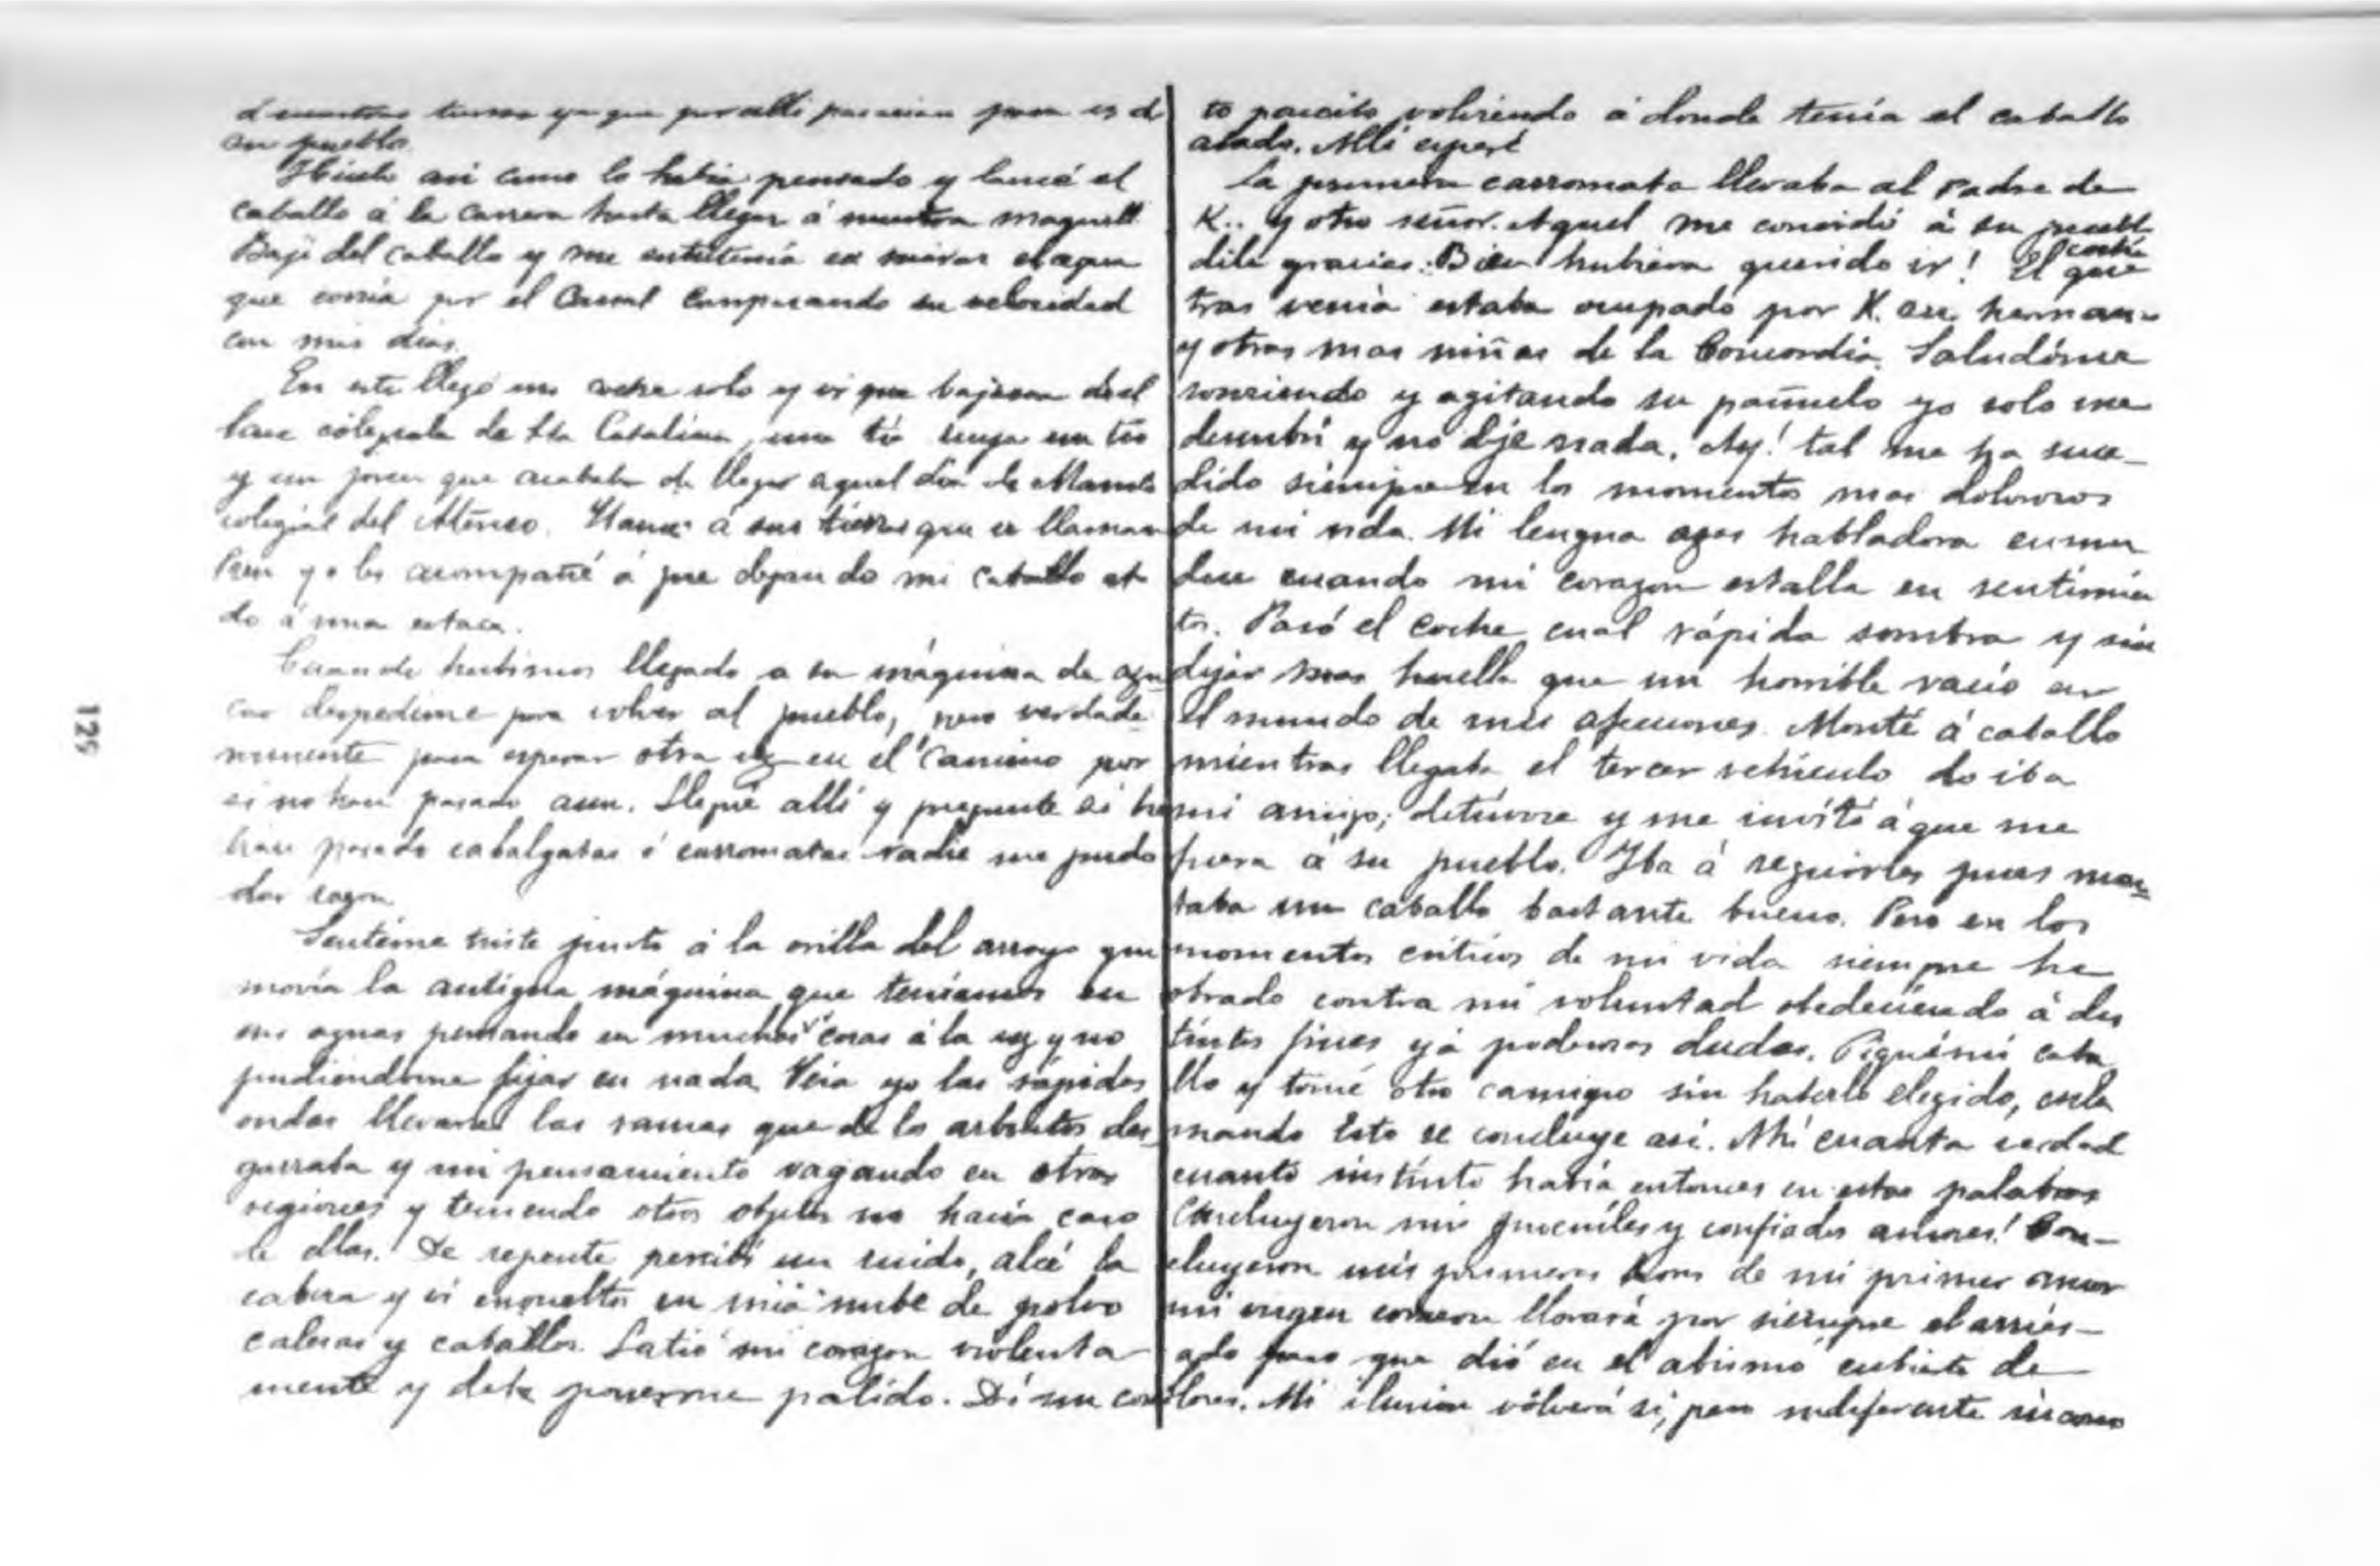 de nuestras tierras ya que por allí pasarían para ir á
su pueblo.
Hícelo así como lo había pensado y lancé el
caballo á la carrera hasta llegar á nuestra
Bajé del caballo y me entretenía en mirar el agua
que corría por el Canal comparando su velocidad
con mis días.
En esto llegó un coche solo y vi que bajaron de el
colegiala de Sta Catalina, una tía suya un tío
y un joven que acababa de llegar aquel día de Manila
colegial del Ateneo. á sus tierras que se llaman
y o les acompañé á pie dejando mi caballo ata
do á una estaca.
Cuando hubimos llegado a su máquina de azu
car despedíme para volver al pueblo, pero verdade
ramente para esperar otra vez en el camino por
si no han pasado aun. Llegué allí y pregunté si ha
bían pasado cabalgatas ó carromatas nadie me pudo
dar razon.
Sentéme triste junto á la orilla del arroyo que
movía la antigua máquina que teníamos en
sus aguas pensando en muchas cosas á la vez y no
pudiéndome fijar en nada. Veía yo las rápidas
ondas llevarse las ramas que de los arbustos des
garraba y mi pensamiento vagando en otras
regiones y teniendo otros objetos no hacía caso
de ellas. De repente percibí un ruido, alcé la
cabeza y vi envueltos en una nube de polvo
calesas y caballos. Latió mi corazon violenta
mente y debí ponerme pálido. Dí un cor
to paseito volviendo á donde tenía el caballo
atado. Allí esperé
La primera carromata llevaba al Padre de
K.. y otro señor. Aquel me convidó á su puebl
dile gracias: Bien hubiera querido ir! El coche
que
tras venía estaba ocupado por K. su herman-
y otras mas niñas de la Concordia. Saludóme
sonriendo y agitando su pañuelo yo solo me
descubrí y no dije nada. Ay! tal me ha suce-
dido siempre en los momentos mas dolorosos
de mi vida. Mi lengua habladora enmu
dece cuando mi corazon estalla en sentimien
tos. Pasó el coche cual rápida sombra y sin
dejar mas huella que un horrible vacío en
el mundo de mis afecciones. Monté á caballo
mientras llegaba el tercer vehículo do iba
mi amigo; detúvose y me invitó á que me
fuera á su pueblo. Iba á seguirles pues mon-
taba un caballo bastante bueno. Pero en los
momentos críticos de mi vida siempre he
obrado contra mi voluntad obedeciendo á dis
tintos fines y á poderosas dudas. Piqué mi caba
llo y tomé otro camino sin haberlo elegido, excla
mando Esto se concluye así. Ah! cuanta verdad
cuanto instinto había entonces en estas palabras
Concluyeron mis juveniles y confiados amores! Con-
cluyeron mis primeras horas de mi primer amor
mi virgen corazon llorará por siempre el arries-
gado paso que dió en el abismo cubierto de
flores. Mi ilusion volverá sí, pero indiferente